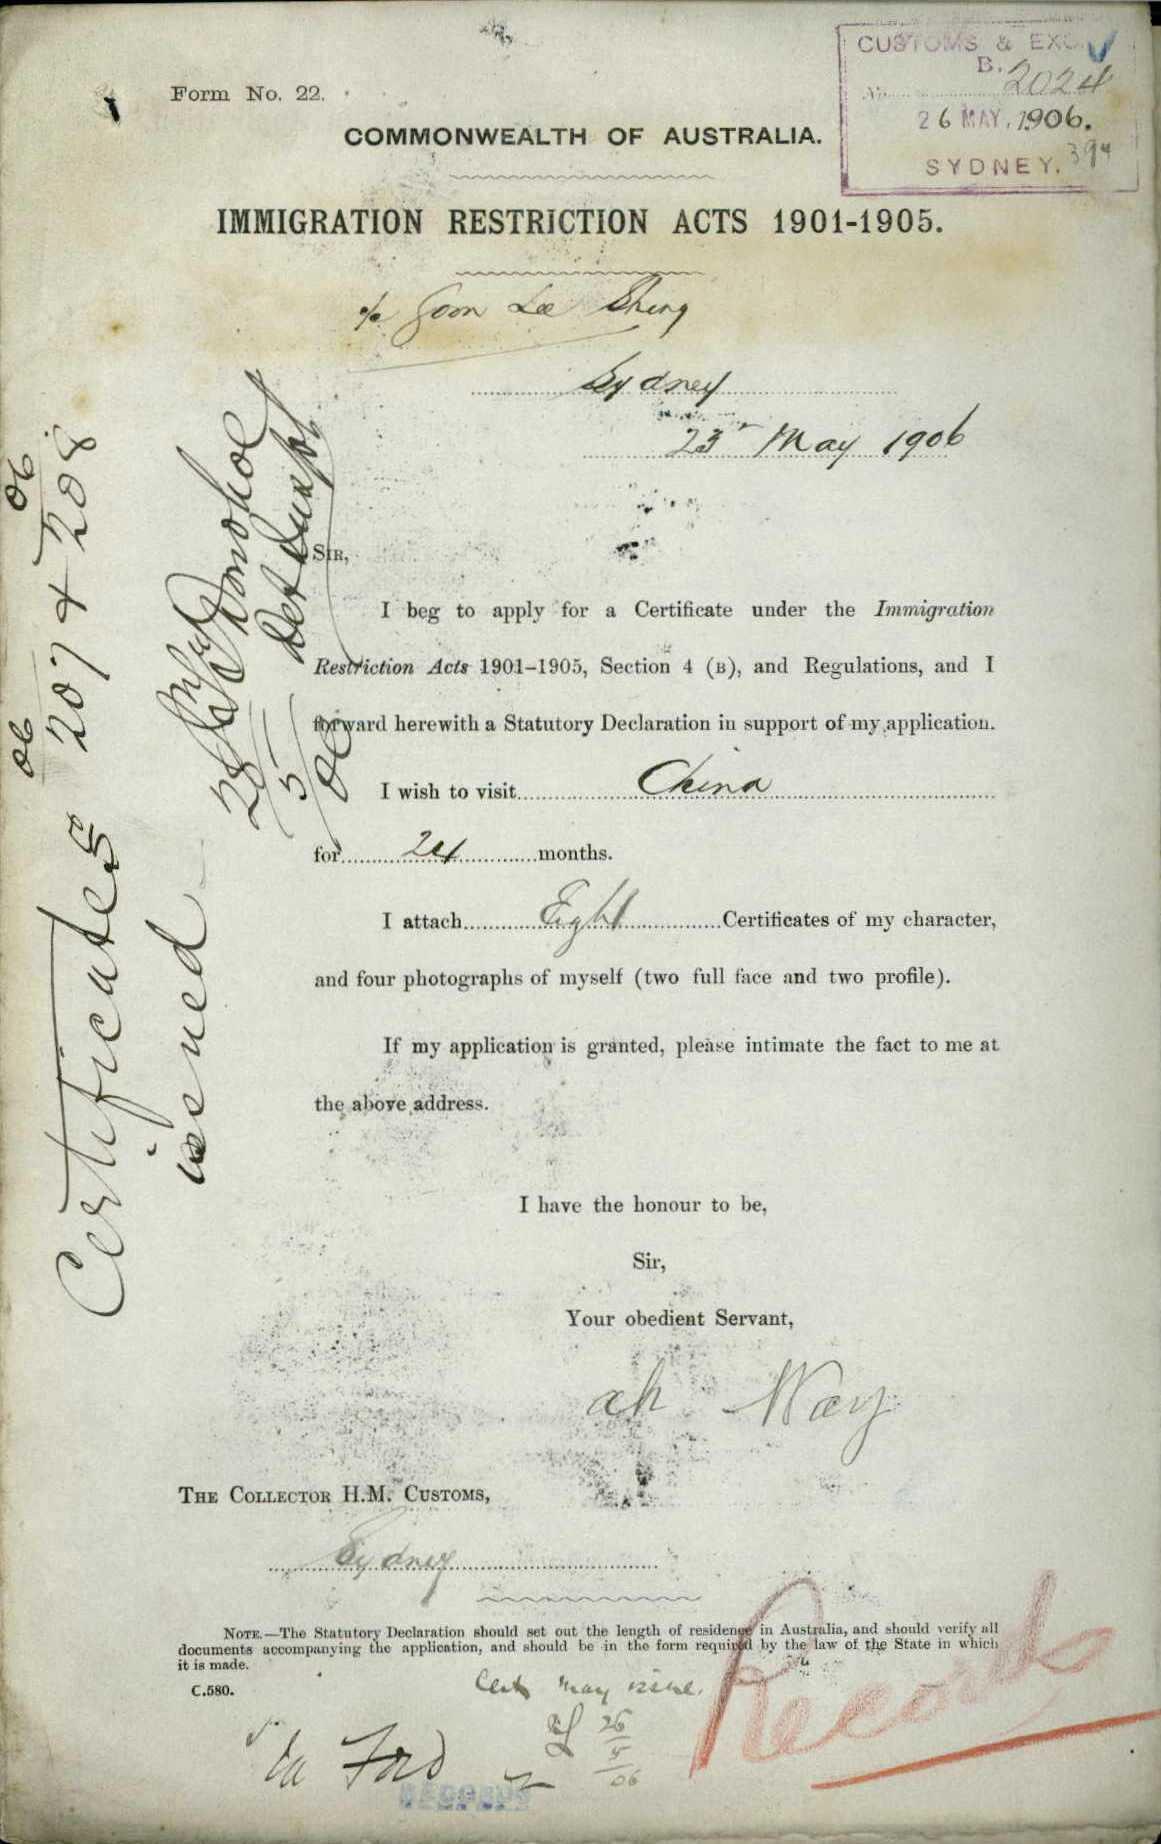 CUSTOMS & EXC
B.
No. 2024
26 MAY. 1906.
SYDNEY.
394
Form No. 22.
COMMONWEALTH OF AUSTRALIA.
IMMIGRATION RESTRICTION ACTS 1901-1905.
c/o Goon Lee Shing
Sydney
23r May 1906
SIR,
I beg to apply for a Certificate under the Immigration
Restriction Acts 1901-1905, Section 4 (B), and Regulations, and I
forward herewith a Statutory Declaration in support of my application.
I wish to visit China
for 24 months.
I attach Eight Certificates of my character,
and four photographs of myself (two full face and two profile).
If my application is granted, please intimate the fact to me at
the above address.
I have the honour to be,
Sir,
Your obedient Servant,
ah Way
THE COLLECTOR H.M. CUSTOMS,
Sydney
NOTE.—The Statutory Declaration should set out the length of residence in Australia, and should verify all
documents accompanying the application, and should be in the form required by the law of the State in which
it is made.
C.580.
Cert may issue.
26
5
06
Records
RECORDS
Certificates 06 207 & 208 06
issued
Donohoe
28
5
06